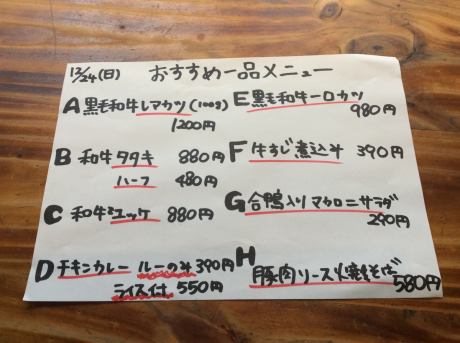 12/24(日) おすすめ一品メニュー
A 黒毛和牛レアカツ(100g)
1200円
B 和牛タタキ 880円
ハーフ 480円
C 和牛ユッケ 880円
D チキンカレー ルーのみ 390円
ライス付 550円
E 黒毛和牛一口カツ
980円
F 牛すじ煮込み 390円
G 合鴨入りマカロニサラダ
290円
H
豚肉ソース焼きそば
580円